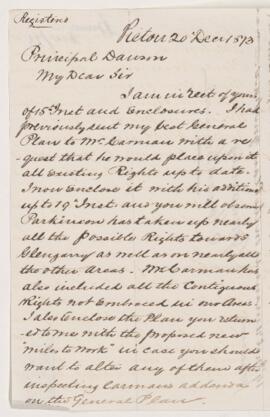 Registered
Pictou 20 Decr 1873
Principal Dawson
My Dear Sir
I am in rect of yours
of 15th Inst and Enclosures. I had
previously sent my best General
Plan to Mr Carman with a re-
quest that he would place upon it
all Existing Rights up to date.
I now Enclose it with his additions
up to 19th Inst and you will observe
Parkinson has taken up nearly
all the Possible Rights towards
Glengarry as well as on nearly all
the other Areas. Mr Carman has
also included all the Contiguous
Rights not Embraced in our Areas.
I also Enclose the Plan you return
ed to me with the proposed new
"miles to Work" in case you should
want to alter any of them after
inspecting Carmans addenda
on the General Plan